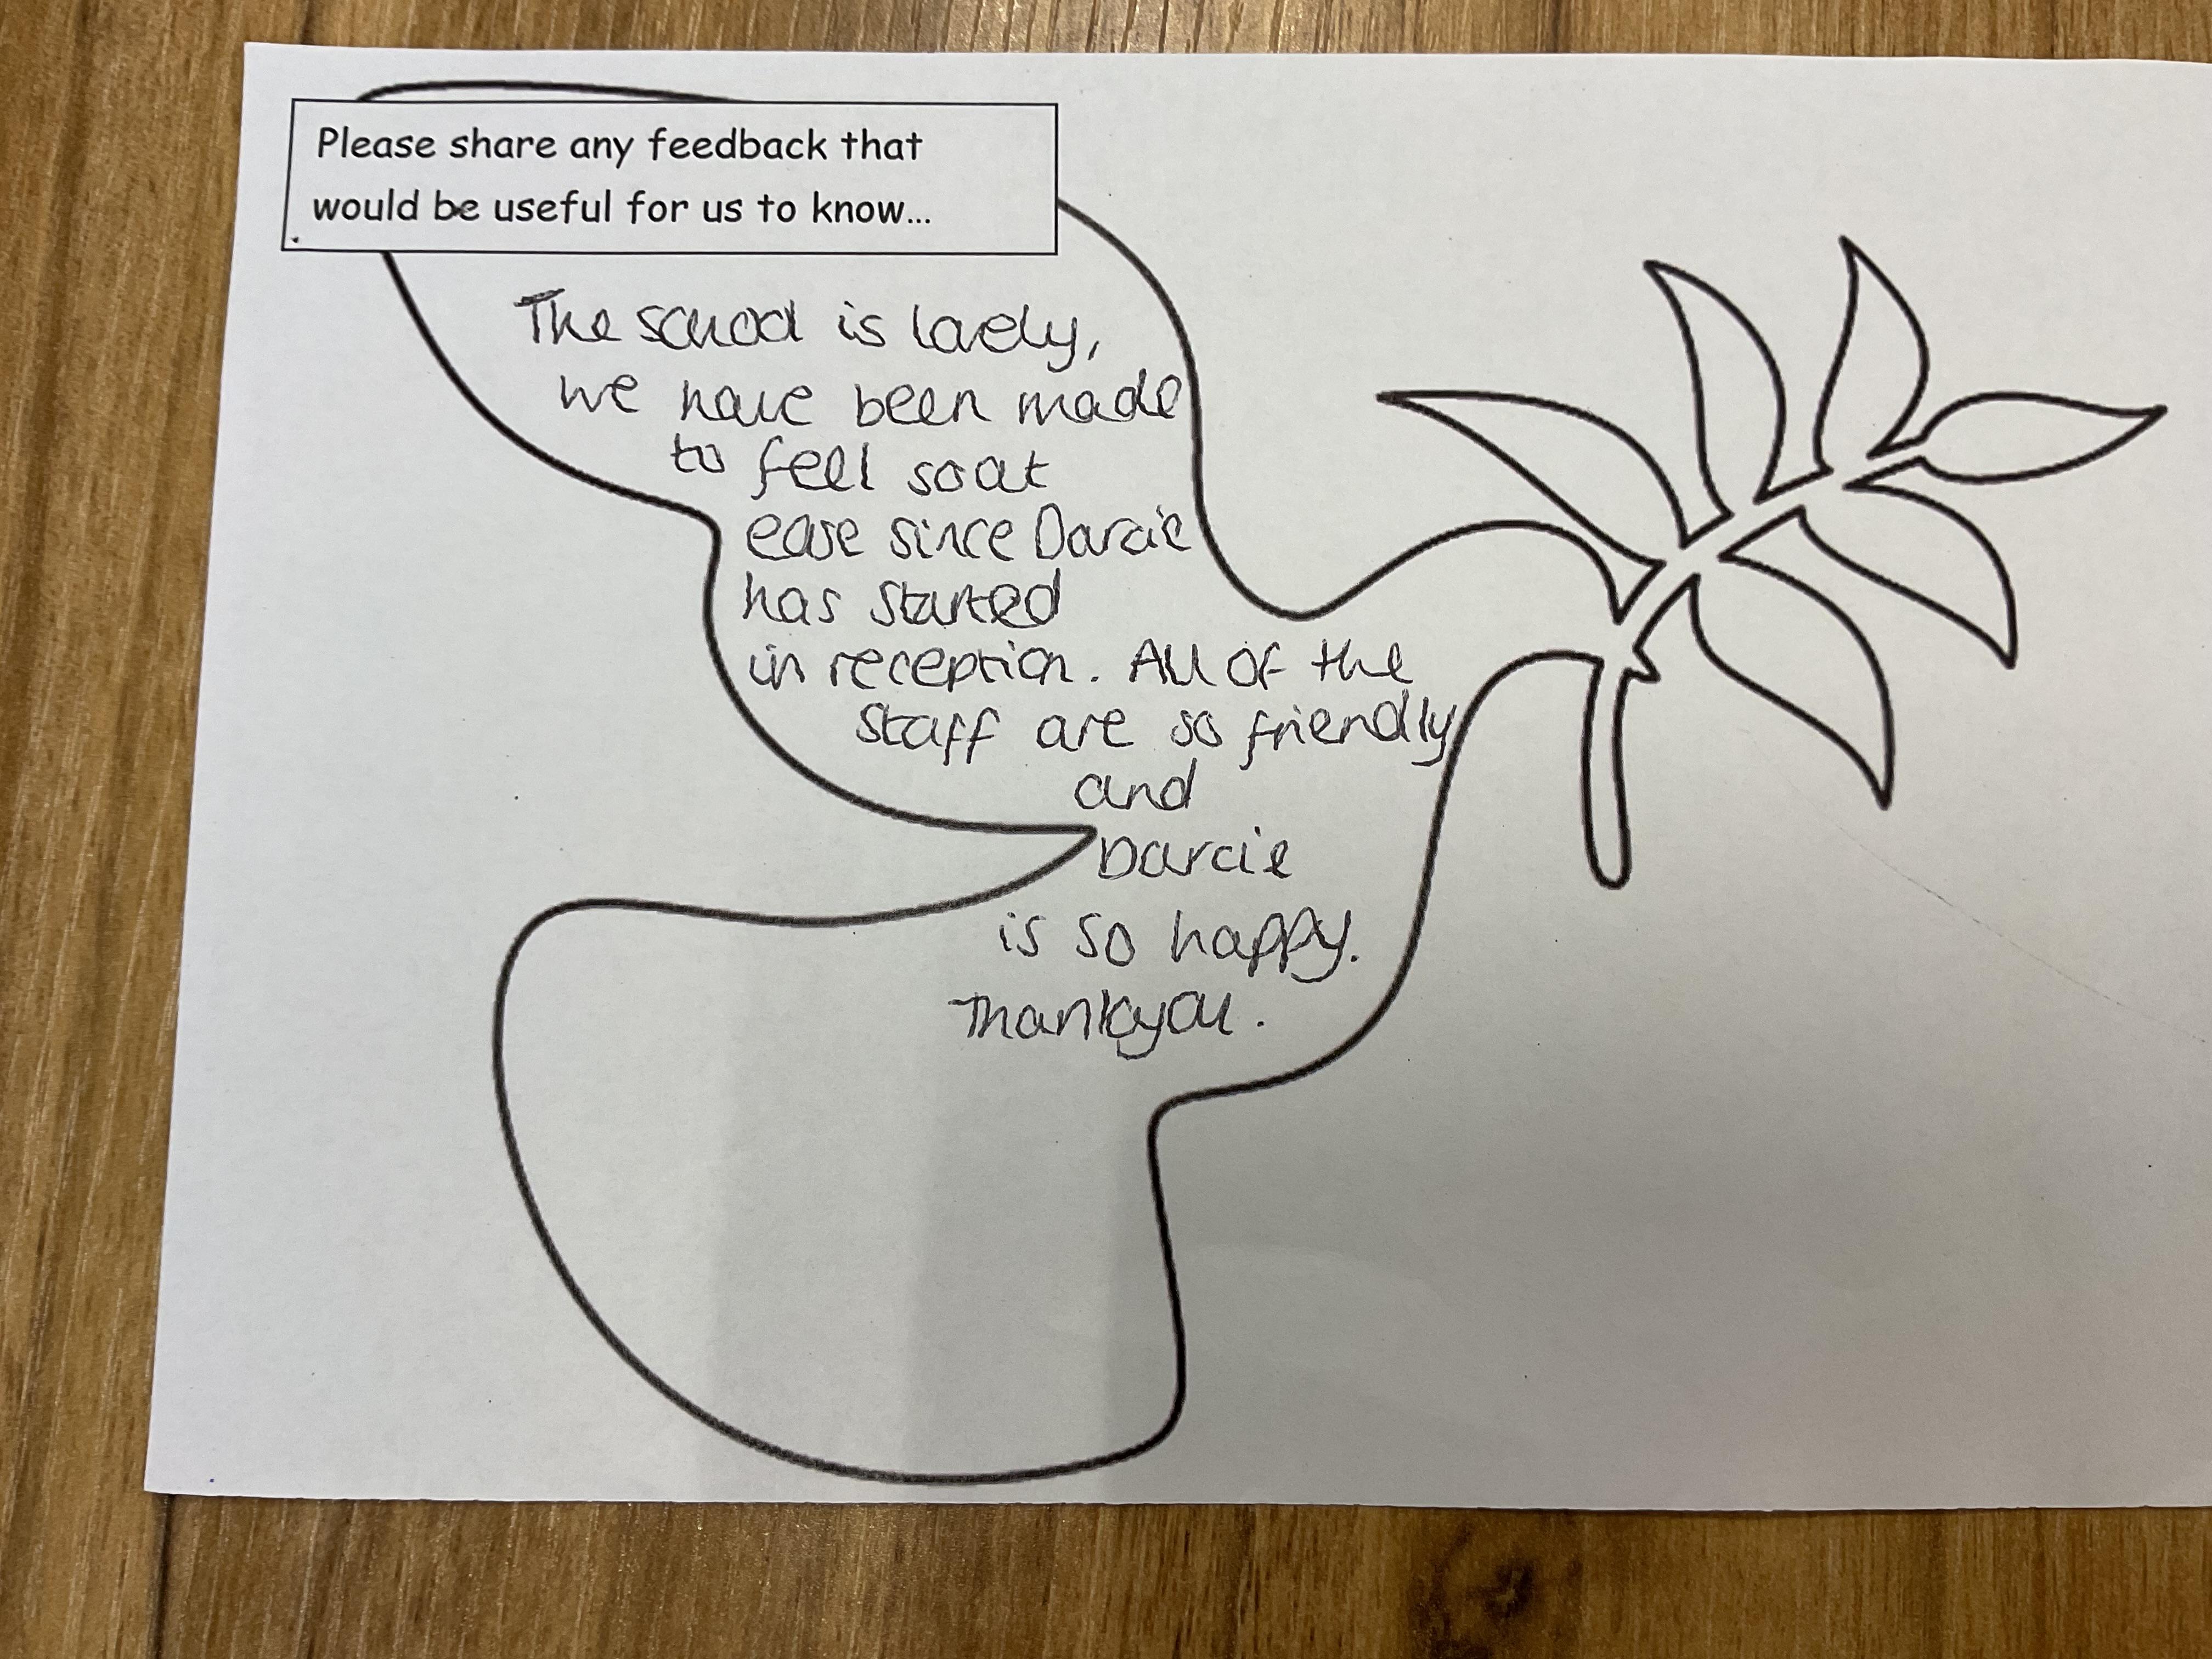 Please share any feedback that
would be useful for us to know...
The school is lovely,
we have been made
to feel so at
ease since Darcie
has started
in reception. All of the
staff are so friendly
and
Darcie
is so happy.
Thankyou.